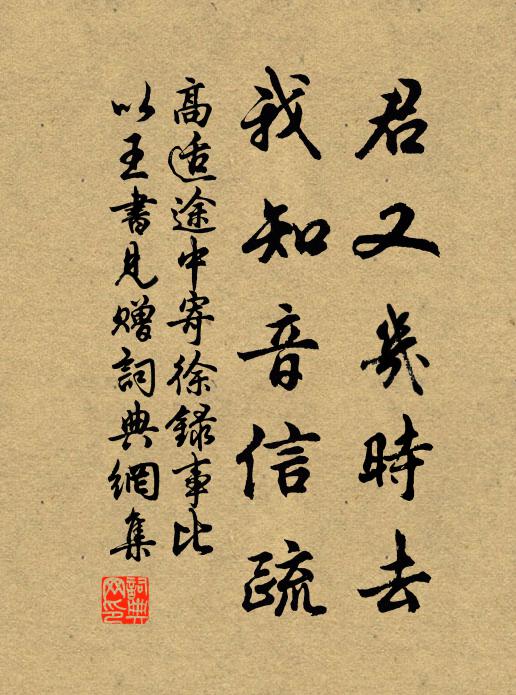 君又幾時去
我知音信疏
高适途中寄徐錄事比
以王書見贈詞典網集
詞典网印